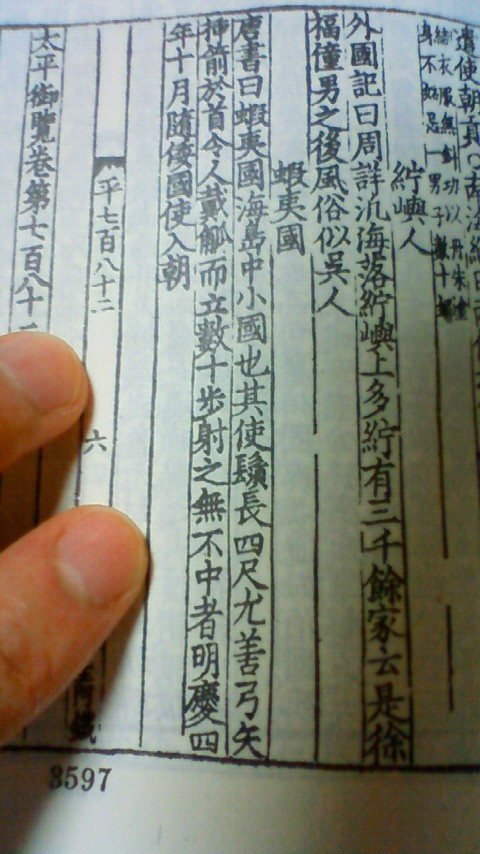 遣使朝貢
結衣服無針功以丹朱塗
身不妬忌一男子數十婦
紵嶼人
外國記曰周詳汎海落紵嶼上多紵有三千餘家云是徐
福僮男之後風俗似吳人
蝦夷國
唐書曰蝦夷國海島中小國也其使鬚長四尺尤善弓矢
揷箭於首令人戴瓠而立數十步射之無不中者明慶四
年十月隨倭國使入朝
平七百八十二
六
太平御覽卷第七百八十二
3597